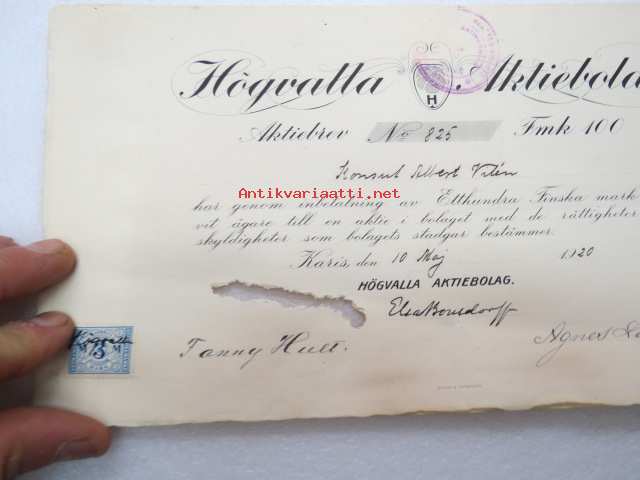 Högvalla Aktiebola
H
Aktiebrev No 825 Fmk 100
Konsul Albert Vilén
Antikvariaatti.net
har genom inbetalning av Etthundra Finska mark
vit ägare till en aktie i bolaget med de rättigheter
skyldigheter som bolagets stadgar bestämmer.
Karis, den 10 Maj 1920
HÖGVALLA AKTIEBOLAG.
Elsa Bonsdorff
Fanny Hult.
Agnes
Högvalla
M 3 M